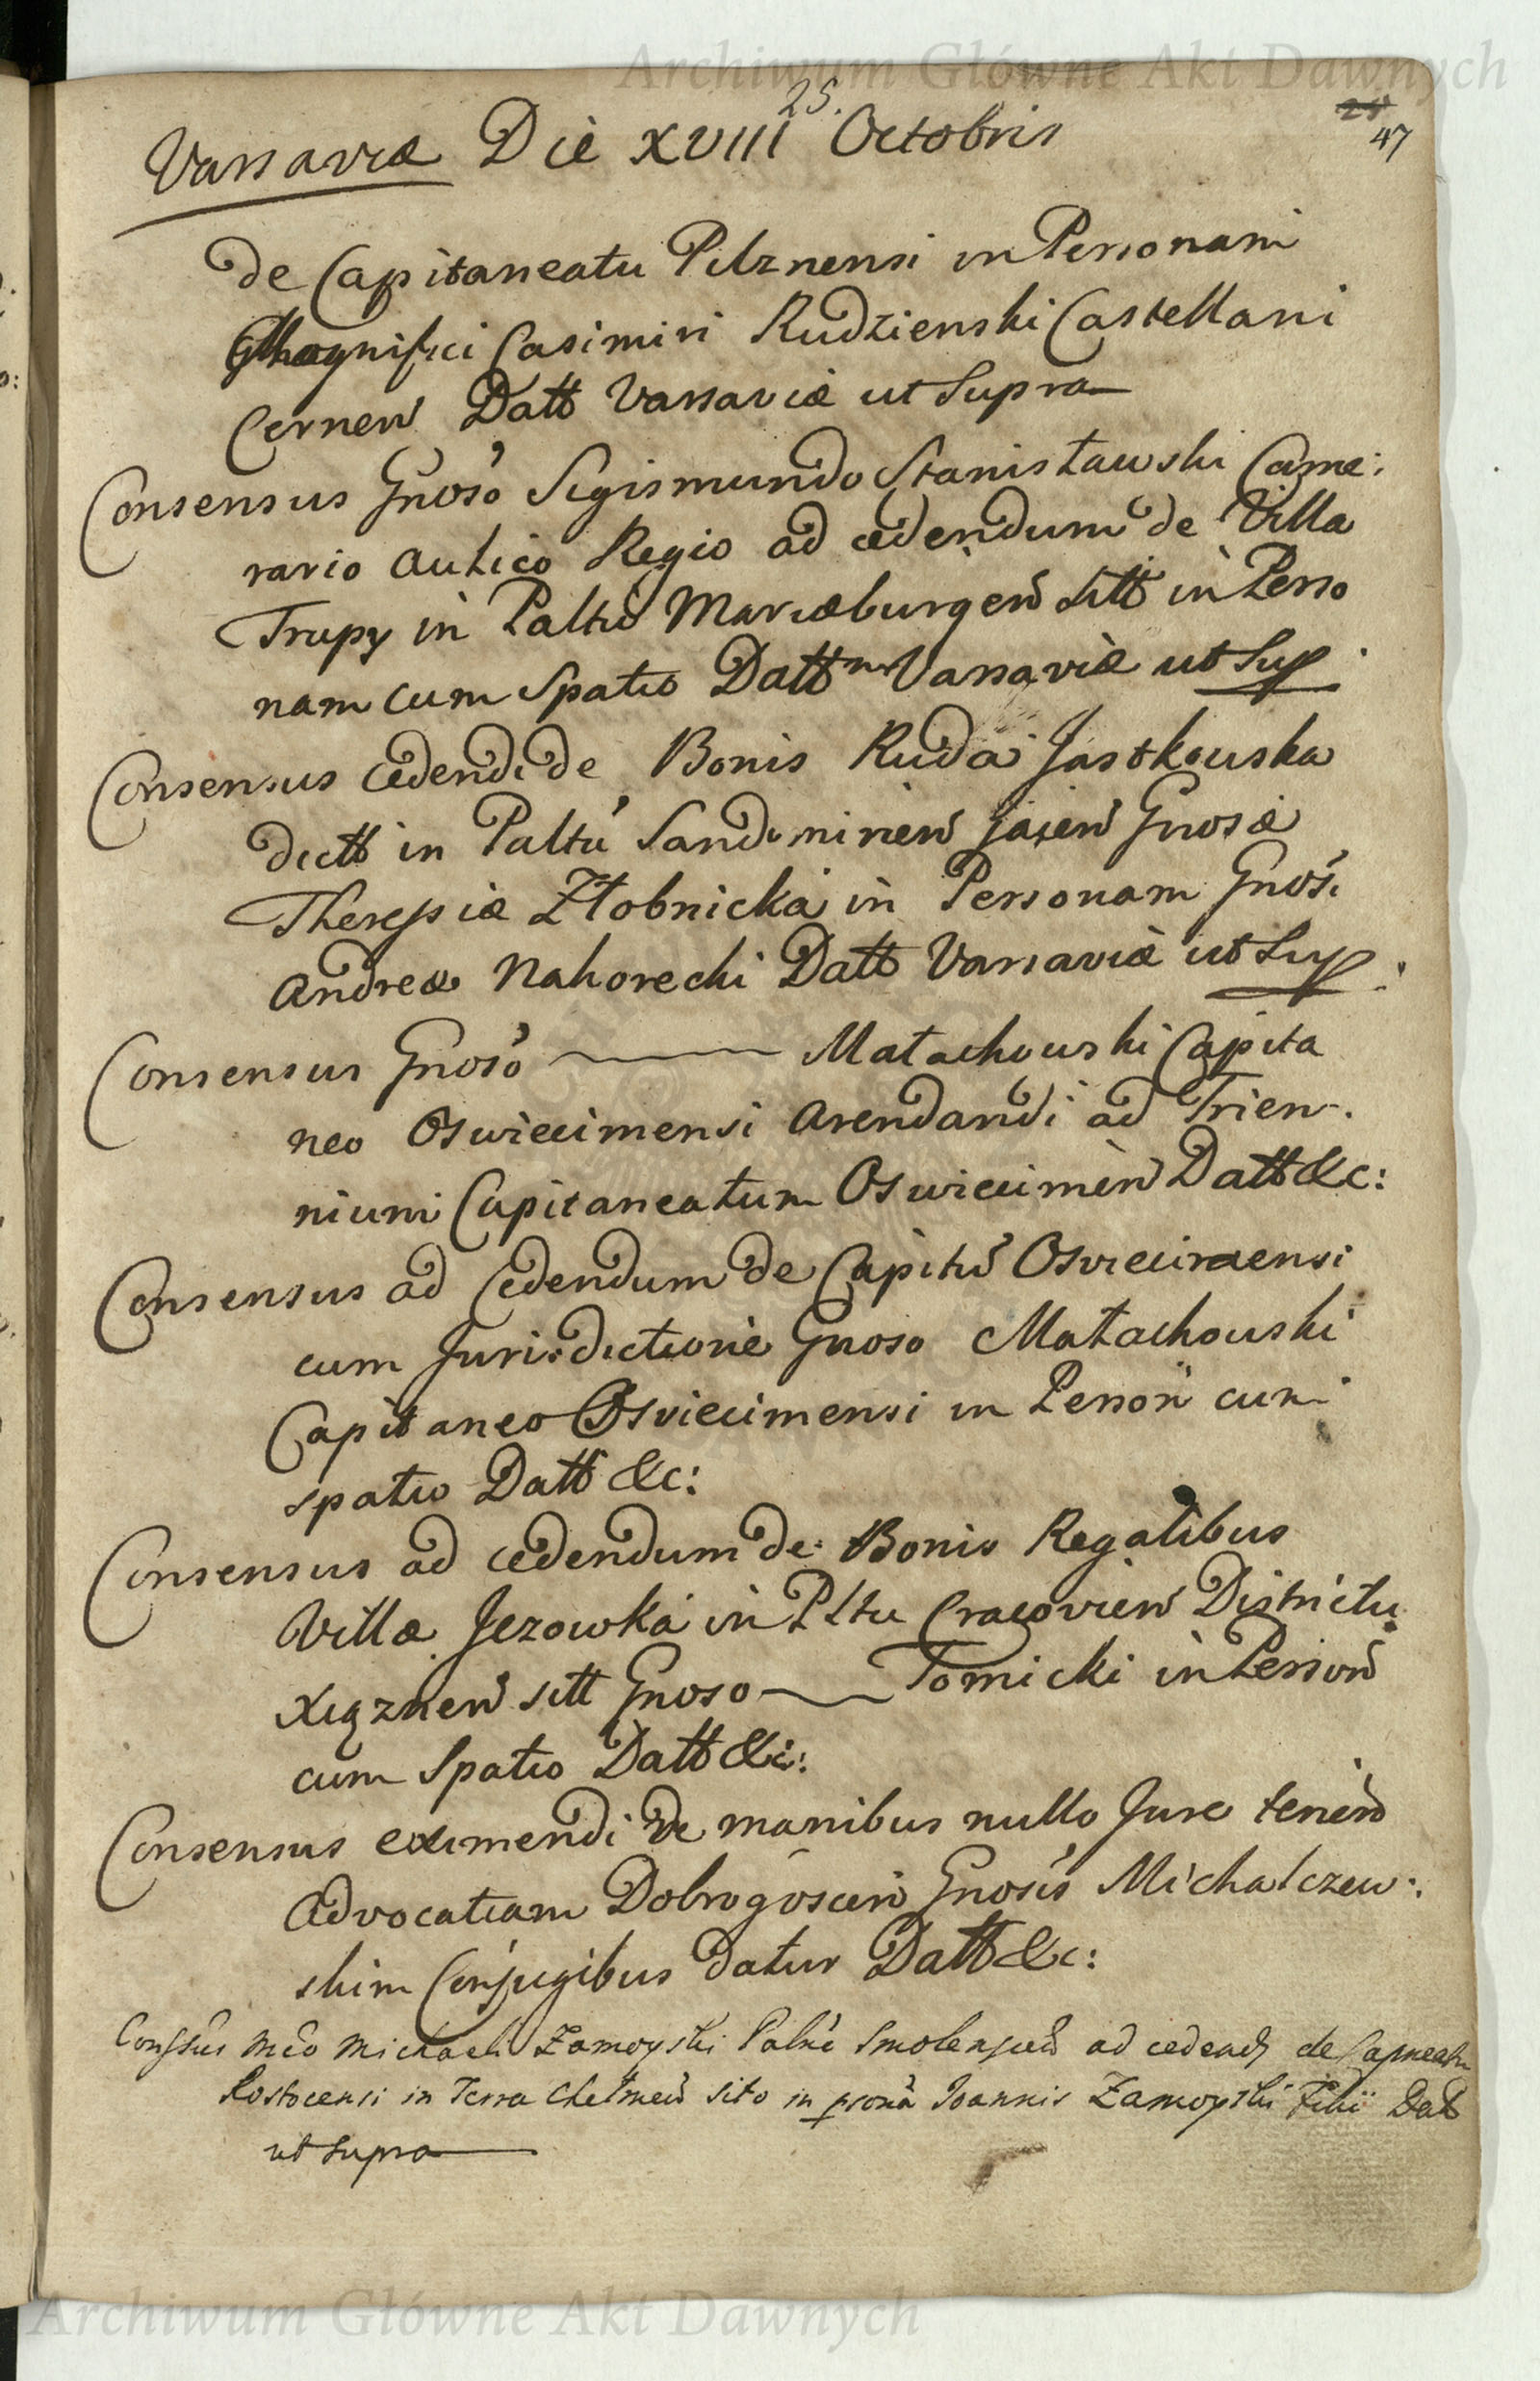 Archiwum Główne Akt Dawnych
25.
Varsaviæ Die XVIII Octobris
24
47
de Capitaneatu Pilznensi in Personam
Magnifici Casimiri Rudzienski Castellani
Cernen Datt Varsaviæ ut Supra
Consensus Gnoso Sigismundo Stanisławski Came:
rario Aulico Regio ad cedendum de Villa
Trupy in Paltu Mariæburgen sitt in Perso
nam cum Spatio Dattm Varsaviæ ut Sup.
Consensus cedendi de Bonis Ruda Jastkowska
dictt in Paltu Sandomirien jacen Gnosæ
Theressiæ Złobnicka in Personam Gnosi
Andreæ Nahorecki Datt Varsaviæ ut Sup:
Consensus Gnoso ——— Małachowski Capita
neo Oswiecimensi Arendandi ad Trien-
nium Capitaneatum Oswiecimen Datt &c:
Consensus ad Cedendum de Capitu Osviecimensi
cum Jurisdictione Gnoso Małachowski
Capitaneo Osviecimensi in Person cum
spatio Datt &c:
Consensus ad cedendum de Bonis Regalibus
Villa Jezowka in Pltu Cracovien Districtu
Xiąznen sitt Gnoso —— Tomicki in Person
cum Spatio Datt &c:
Consensus eximendi de manibus nullo Jure tenen
Advocatiam Dobrogoscen Gnosis Michalczew:
skim Conjugibus datur Datt &c:
Conssus Mco Michaeli Zamoyski Palni Smolenscen ad cedend de Capneatu
Rostocensi in Terra Chełmen sito in psonã Joannis Zamoyski Filii Dat
ut supra
Archiwum Główne Akt Dawnych